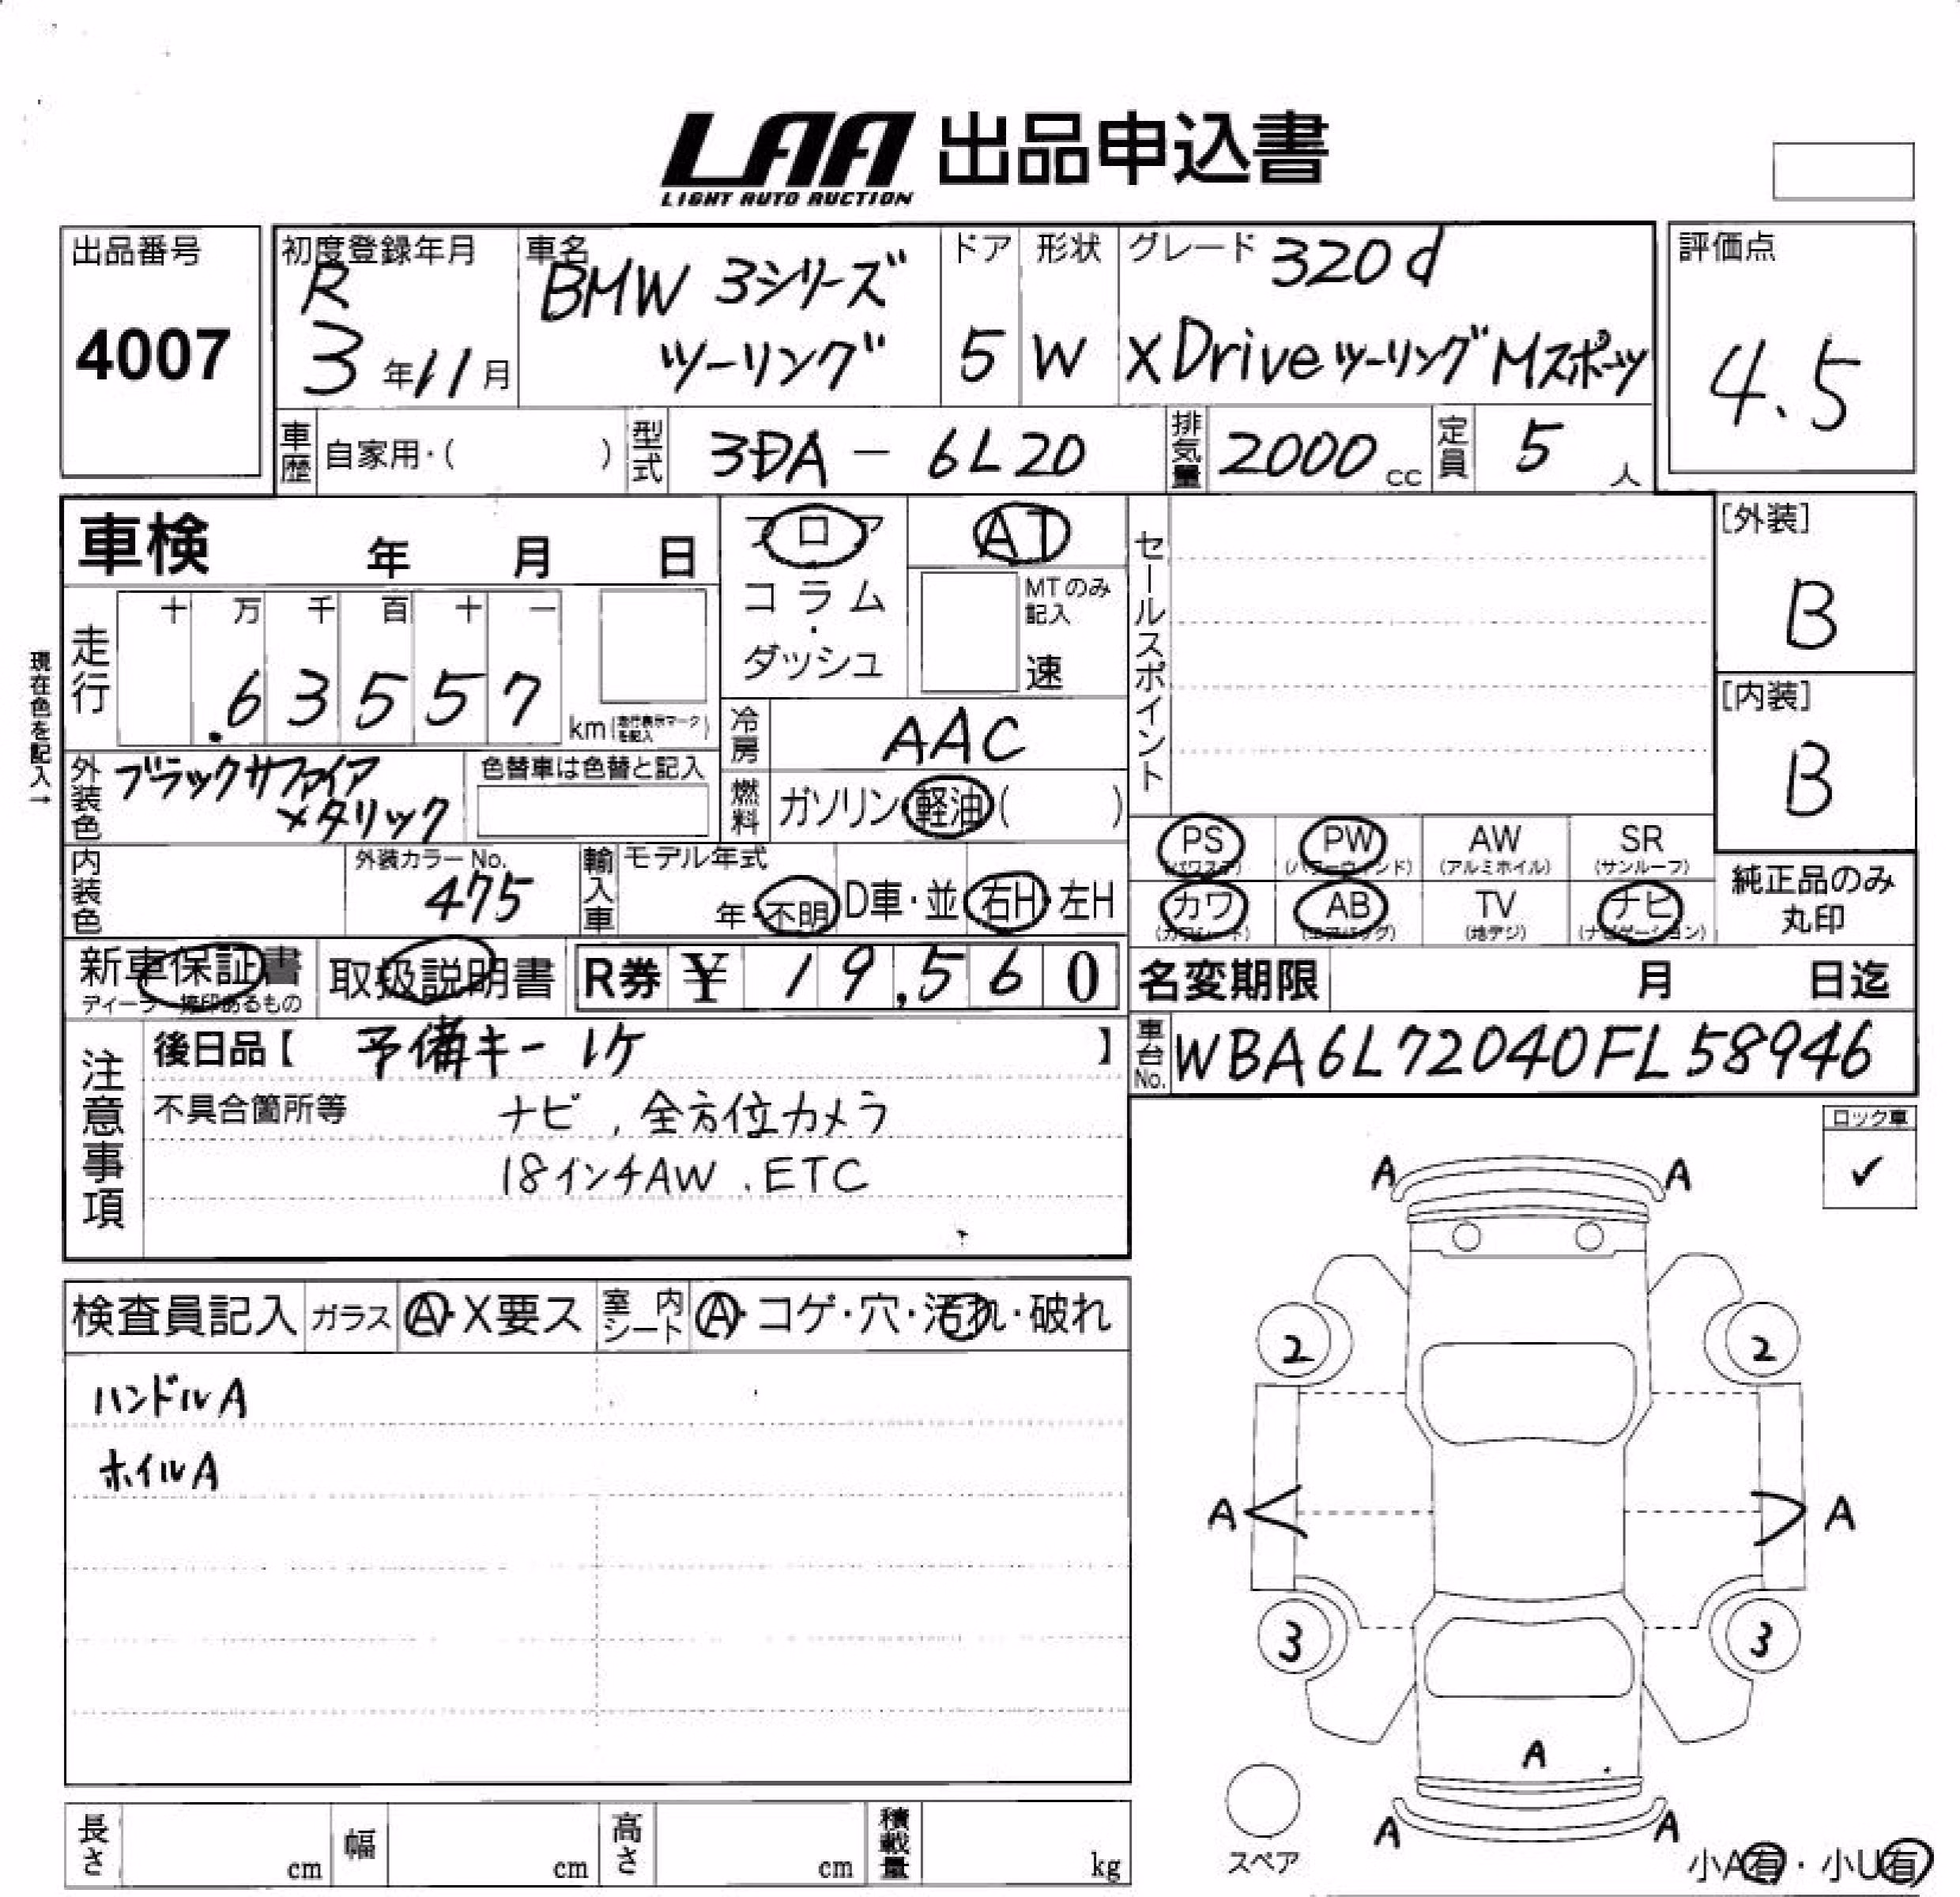 LAA 出品申込書
LIGHT AUTO AUCTION
出品番号
4007
初度登録年月
R
3 年 11 月
車名
BMW 3シリーズ
ツーリング
ドア
5
形状
W
グレード 320d
XDriveツーリング Mスポーツ
評価点
4.5
車歴 自家用・( )
型式 3DA - 6L20
排気量 2000 cc
定員 5 人
車検 年 月 日
フロア
コラム
・
ダッシュ
AT
MTのみ
記入
速
セールスポイント
[外装]
B
[内装]
B
現在色を記入→
走行
十 万 千 百 十 一
6 3 5 5 7
km(走行表示マークを記入)
冷房 AAC
外装色 ブラックサファイア
メタリック
色替車は色替と記入
燃料 ガソリン・軽油( )
内装色
外装カラーNo.
475
輸入車 モデル年式
年・不明 D車・並 右H・左H
PS
(パワステ)
PW
(パワーウィンド)
AW
(アルミホイル)
SR
(サンルーフ)
カワ
(カワシート)
AB
(エアバッグ)
TV
(地デジ)
ナビ
(ナビゲーション)
純正品のみ
丸印
新車保証書
取扱説明書
R券 ¥ 19,560
名変期限 月 日迄
車台No. WBA6L72040FL58946
注意事項
後日品【 予備キー 1ケ 】
不具合箇所等 ナビ, 全方位カメラ
18インチAW . ETC
ロック車
✓
検査員記入 ガラス A・X要ス 室内シート A・コゲ・穴・汚れ・破れ
ハンドルA
ホイルA
A A
2 2
A A
3 3
A
A A
スペア
小A有・小U有
長さ cm 幅 cm 高さ cm 積載量 kg